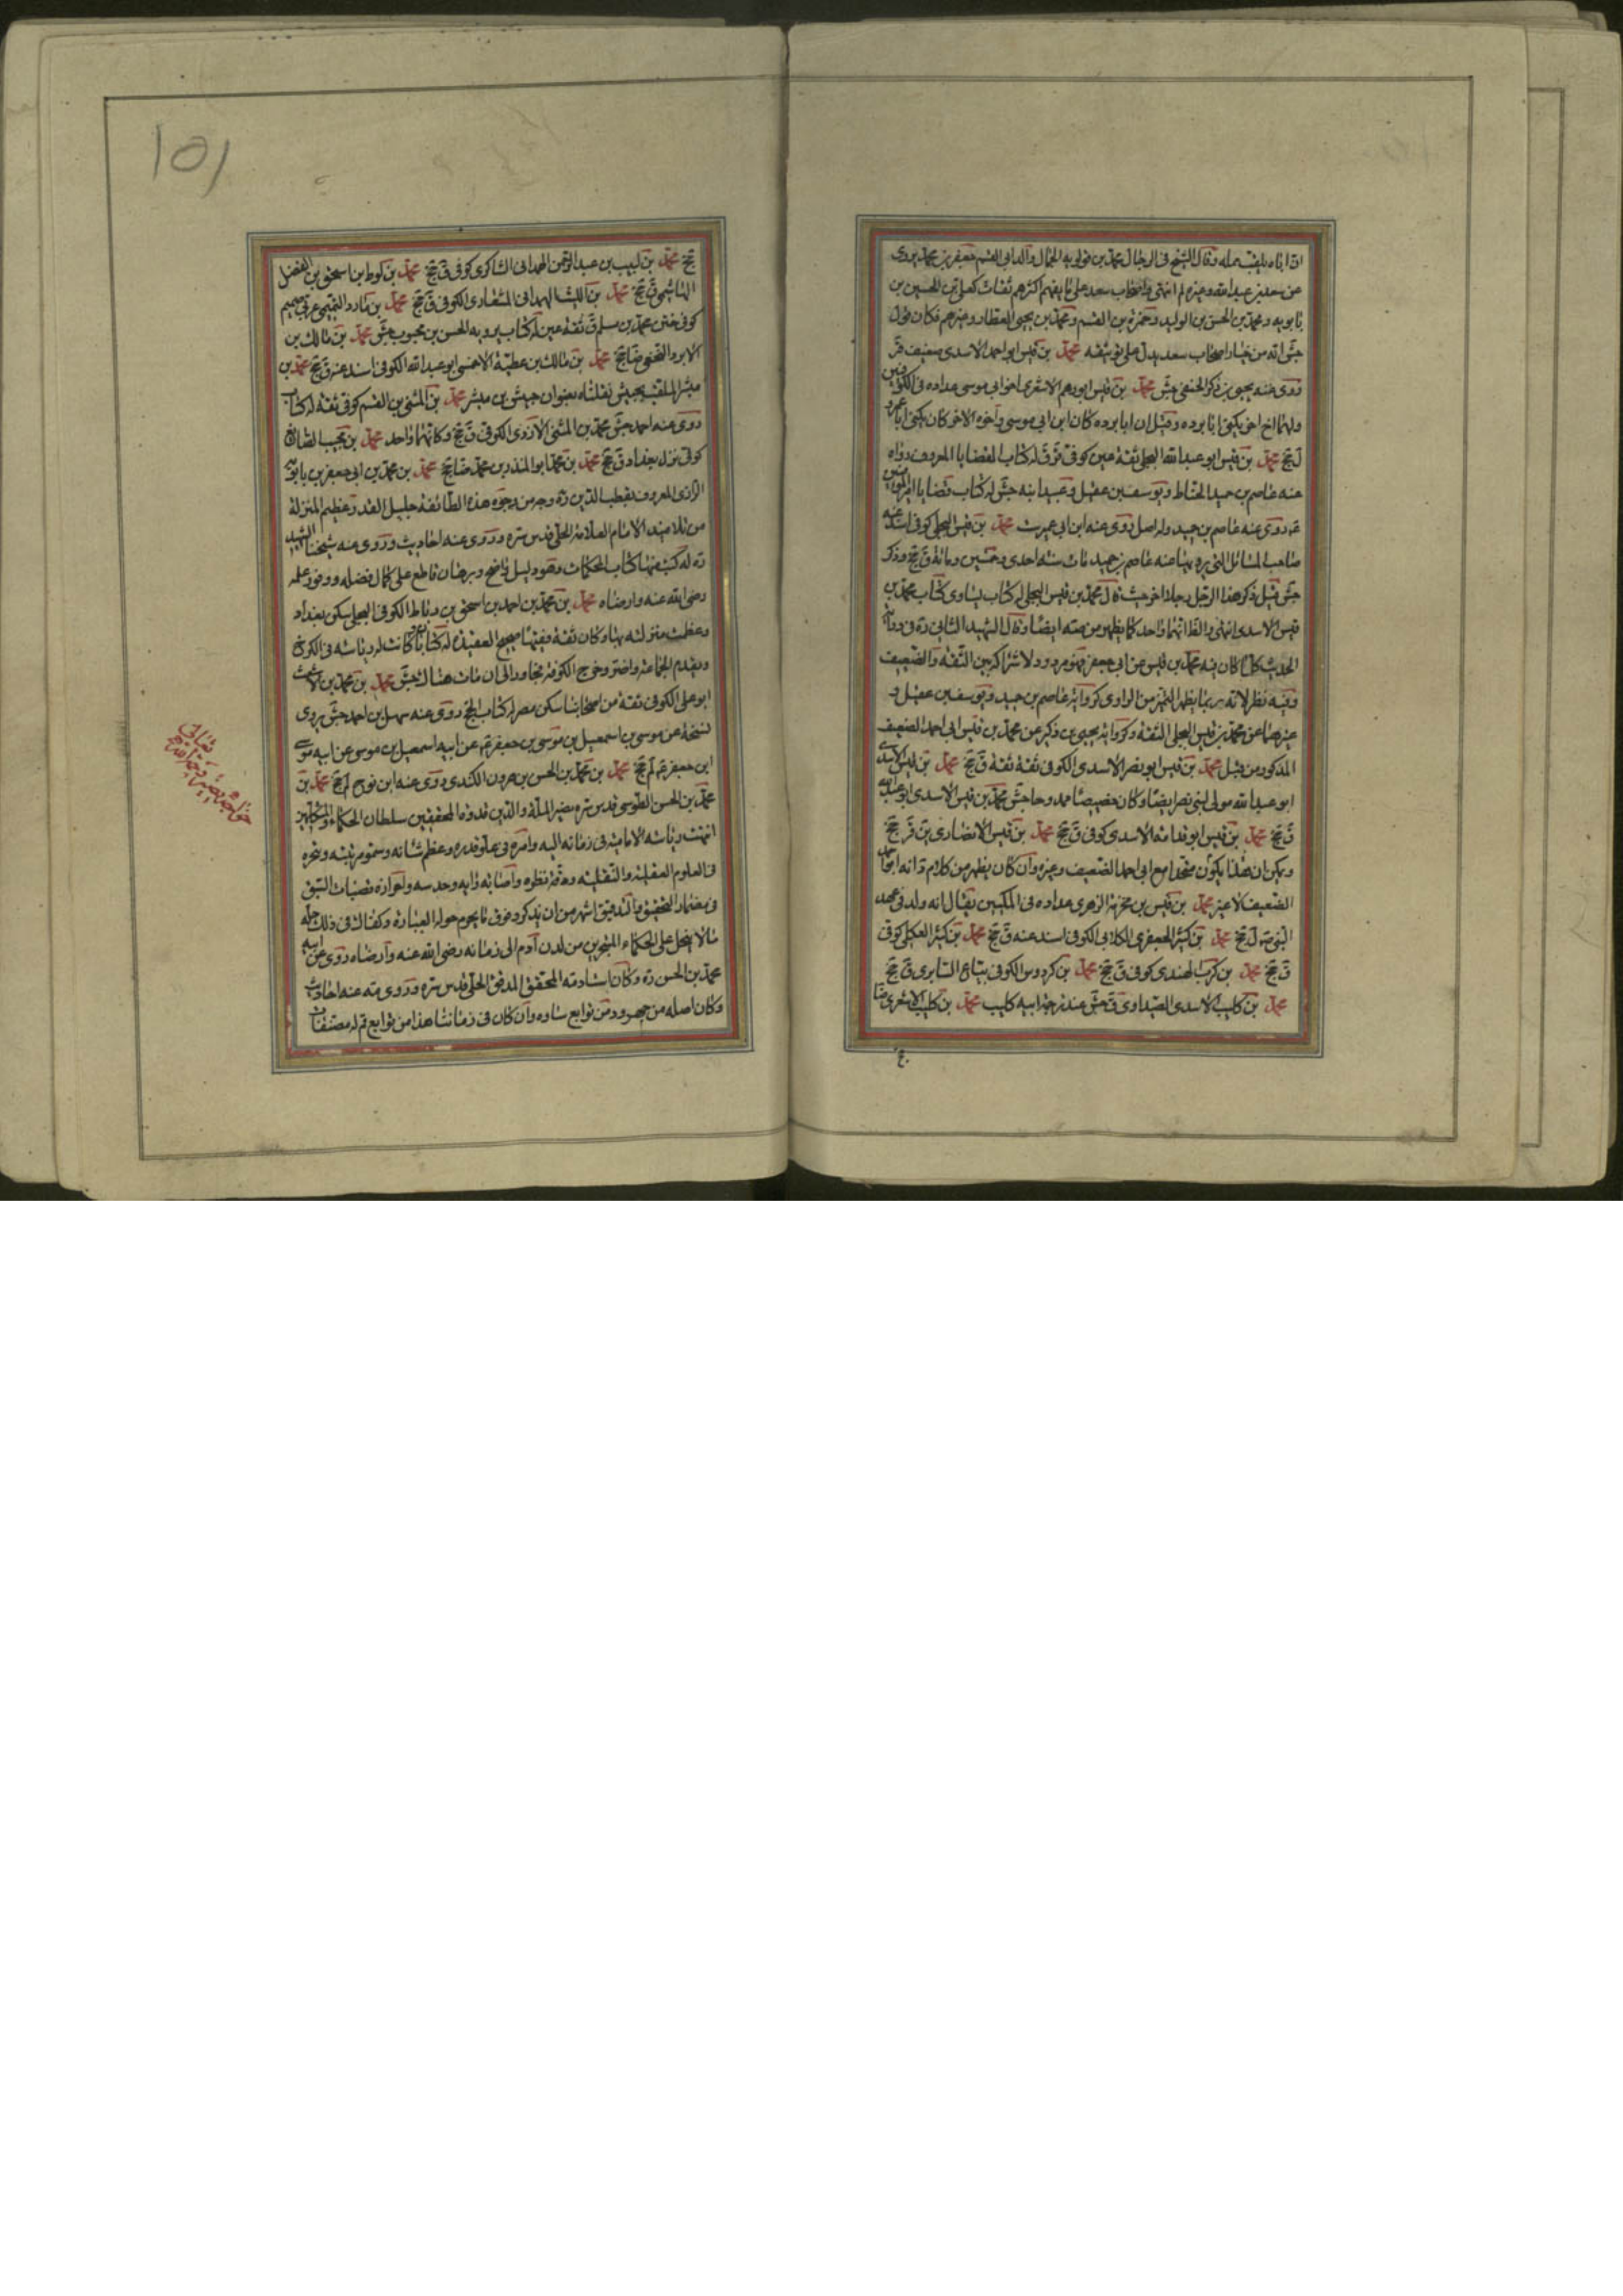 ان اباه يلقب مملة وقال الشيخ في الرجال محمد بن قولويه الجمال والد ابي القسم جعفر بن محمد يروي
عن سعد بن عبد الله وغيره لم انتهى واصحاب سعد على ما يفهم اكثرهم ثقات كعلي بن الحسين بن
بابويه ومحمد بن الحسن بن الوليد وحمزة بن القسم ومحمد بن يحيى العطار وغيرهم فكان قول
جش انه من خيار اصحاب سعد يدل على توثيقه محمد بن قيس ابو احمد الاسدي ضعيف قر
روى عنه يحيى بن زكريا الحنفي جش محمد بن قيس ابو رهم الاشعري اخو ابي موسى عداده في الكوفيين
ولهما اخ اخر يكنى ابا بردة وقيل ان ابا بردة كان ابن ابي موسى واخوه الاخر كان يكنى ابا عمرو
ل جخ محمد بن قيس ابو عبد الله البجلي ثقة عين كوفي قر ق له كتاب القضايا المعروف رواه
عنه عاصم بن حميد الحناط ويوسف بن عقيل وعبيد ابنه جش له كتاب قضايا امير المؤمنين
ع روى عنه عاصم بن حميد وله اصل روى عنه ابن ابي عمير ست محمد بن قيس البجلي كوفي اسند عنه
صاحب المسائل التي يرويها عنه عاصم بن حميد مات سنة احدى وخمسين ومائة ق جخ وذكر
جش قبل ذكر هذا الرجل رجلا اخر حيث قال محمد بن قيس البجلي له كتاب يساوي كتاب محمد بن
قيس الاسدي انتهى والظاهر انهما واحد كما يظهر من ست ايضا وقال الشهيد الثاني ره في دراية
الحديث كلما كان فيه محمد بن قيس عن ابي جعفر ع فهو مردود لاشتراكه بين الثقة والضعيف
وفيه نظر لانه ربما يظهر التميز من الراوي كرواية عاصم بن حميد ويوسف بن عقيل و
غيرهما عن محمد بن قيس البجلي الثقة وكرواية يحيى بن زكريا عن محمد بن قيس ابي احمد الضعيف
المذكور من قبل محمد بن قيس ابو نصر الاسدي الكوفي ثقة ثقة ق جخ محمد بن قيس الاسدي
ابو عبد الله مولى لبني نصر ايضا وكان خصيصا ممدوحا جش محمد بن قيس الاسدي ابو عبد الله
ق جخ محمد بن قيس ابو قدامة الاسدي كوفي ق جخ محمد بن قيس الانصاري ين قر جخ
ويمكن ان هذا يكون متحدا مع ابي احمد الضعيف وغيره وان كان يظهر من كلام د انه ابو احمد
الضعيف لا غير محمد بن قيس بن مخرمة الزهري عداده في المكيين يقال انه ولد في عهد
النبي ص ل جخ محمد بن كثير الجعفري الكلابي الكوفي اسند عنه ق جخ محمد بن كثير العكلي كوفي
ق جخ محمد بن كرب الهندي كوفي ق جخ محمد بن كردوس الكوفي بياع السابري ق جخ
محمد بن كليب الاسدي الصيداوي ق جش عند ترجمة ابيه كليب محمد بن كليب الاشعري ضا
جخ
جخ محمد بن لبيب بن عبد الرحمن الهمداني الشاكري كوفي ق جخ محمد بن لوط بن اسحق بن الفضل
الهاشمي ق جخ محمد بن الليث الهمداني المشعاري الكوفي ق جخ محمد بن مارد التميمي عربي صميم
كوفي ختن محمد بن مسلم ق ثقة عين له كتاب يرويه الحسن بن محبوب جش محمد بن مالك بن
الابرد النخعي ضا جخ محمد بن مالك بن عطية الاحمسي ابو عبد الله الكوفي اسند عنه ق جخ محمد بن
مبشر الملقب بحبيش نقلناه بعنوان حبيش بن مبشر محمد بن المثنى بن القسم كوفي ثقة له كتاب
روى عنه احمد جش محمد بن المثنى الازدي الكوفي ق جخ وكانهما واحد محمد بن مجيب الصائغ
كوفي نزل بغداد ق جخ محمد بن محمد ابو المنذر بن محمد ضا جخ محمد بن محمد بن ابي جعفر بن بابويه
الرازي المعروف بقطب الدين ره وجه من وجوه هذه الطائفة جليل القدر عظيم المنزلة
من تلاميذ الامام العلامة الحلي قدس سره وروى عنه احاديث وروى عنه شيخنا الشهيد
ره له كتب منها كتاب المحاكمات وهو دليل واضح وبرهان قاطع على كمال فضله ووفور علمه
رضي الله عنه وارضاه محمد بن محمد بن احمد بن اسحق بن رباط الكوفي البجلي سكن بغداد
وعظمت منزلته بها وكان ثقة فقيها صحيح العقيدة له كتاب كانت له رياسة في الكرخ
وتقدم الجماعة واختر وخرج الكوفة مجاورا الى ان مات هناك جش محمد بن محمد بن الاشعث
ابو علي الكوفي ثقة من اصحابنا سكن مصر له كتاب الحج روى عنه سهل بن احمد جش يروي
نسخة عن موسى بن اسمعيل بن موسى بن جعفر ع عن ابيه اسمعيل بن موسى عن ابيه موسى
ابن جعفر ع لم جخ محمد بن محمد بن الحسن بن هرون الكندي روى عنه ابن نوح لم جخ محمد بن
محمد بن الحسن الطوسي قدس سره نصير الملة والدين قدوة المحققين سلطان الحكماء والمتكلمين
انتهت رياسة الامامية في زمانه اليه وامره في علو قدره وعظم شانه وسمو مرتبته وتبحره
في العلوم العقلية والنقلية ودقة نظره واصابة رايه وحدسه واحرازه قصبات السبق
في مضمار التحقيق والتدقيق اشهر من ان يذكر وفوق ما يحوم حوله العبارة وكفاك في ذلك حله
ما لا ينحل على الحكماء المتبحرين من لدن آدم الى زمانه رضي الله عنه وارضاه روى عن ابيه
محمد بن الحسن ره وكان استاد مة المحقق المدقق الحلي قدس سره وروى مة عنه احاديث
وكان اصله من جهرود من توابع ساوه وان كان في زماننا هذا من توابع قم له مصنفات